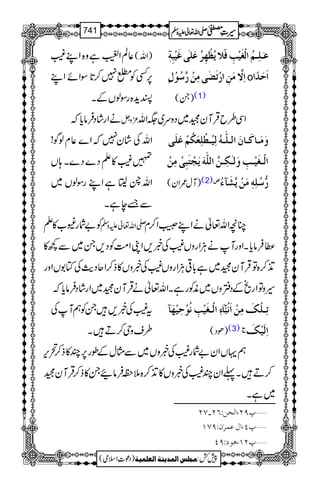 سیرتِ مصطفیٰ صلی اللہ تعالیٰ علیہ وسلم 741
عٰلِمُ الْغَیْبِ فَلَا یُظْهِرُ عَلٰى غَیْبِهٖۤ
(اللہ) عالم الغیب ہے وہ اپنے غیب
اَحَدًاۙ۝ اِلَّا مَنِ ارْتَضٰى مِنْ رَّسُوْلٍ
پر کسی کو مطلع نہیں کرتا سوائے اپنے
(1) (جن)
پسندیدہ رسولوں کے۔
اسی طرح قرآن مجید میں دوسری جگہ اللہ عزوجل نے ارشاد فرمایا کہ
وَ مَا كَانَ اللّٰهُ لِیُطْلِعَكُمْ عَلَى
اللہ کی شان یہ نہیں کہ اے عام لوگو!
الْغَیْبِ وَ لٰكِنَّ اللّٰهَ یَجْتَبِیْ مِنْ
تمہیں غیب کا علم دے دے۔ ہاں
رُّسُلِهٖ مَنْ یَّشَآءُ (2) (آل عمران)
اللہ چن لیتا ہے اپنے رسولوں میں
سے جسے چاہے۔
چنانچہ اللہ تعالیٰ نے اپنے حبیب اکرم صلی اللہ تعالیٰ علیہ وسلم کو بے شمار غیوب کا علم
عطا فرمایا۔ اور آپ نے ہزاروں غیب کی خبریں اپنی امت کو دیں جن میں سے کچھ کا
تذکرہ تو قرآن مجید میں ہے باقی ہزاروں غیب کی خبروں کا ذکر احادیث کی کتابوں اور
سیر و تواریخ کے دفتروں میں مذکور ہے۔ اللہ تعالیٰ نے قرآن مجید میں ارشاد فرمایا کہ
تِلْكَ مِنْ اَنْۢبَآءِ الْغَیْبِ نُوْحِیْهَاۤ
یہ غیب کی خبریں ہیں جن کو ہم آپ کی
اِلَیْكَ (3) (ہود)
طرف وحی کرتے ہیں۔
ہم یہاں ان بے شمار غیب کی خبروں میں سے مثال کے طور پر چند کا ذکر تحریر
کرتے ہیں۔ پہلے ان چند غیب کی خبروں کا تذکرہ ملاحظہ فرمایئے جن کا ذکر قرآن مجید
میں ہے۔
پ۲۹،الجن:۲۶۔۲۷
پ۴،ال عمران:۱۷۹
پ۱۲،ھود:۴۹
پیش کش: مجلس المدینة العلمیة (دعوتِ اسلامی)